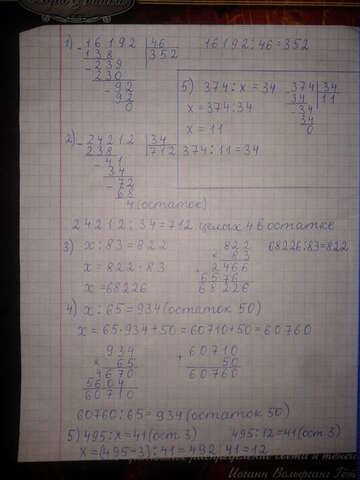 1) -16192 |46 16192:46=352
138 352
-239
230
-92
92
0
5) 374:x=34 -374 |34
x=374:34 34 11
x=11 -34
34
0
374:11=34
2) -24212 |34
238 712
-41
34
-72
68
4(остаток)
24212:34=712 целых 4 в остатке
3) x:83=822 822 68226:83=822
x=822·83 × 83
x=68226 +2466
6576
68226
4) x:65=934(остаток 50)
x=65·934+50=60710+50=60760
934 +60710
×65 50
4670 60760
5604
60710
60760:65=934(остаток 50)
5) 495:x=41(ост.3) 495:12=41(ост.3)
x=(495-3):41=492:41=12
Иоганн Вольфганг Гёте